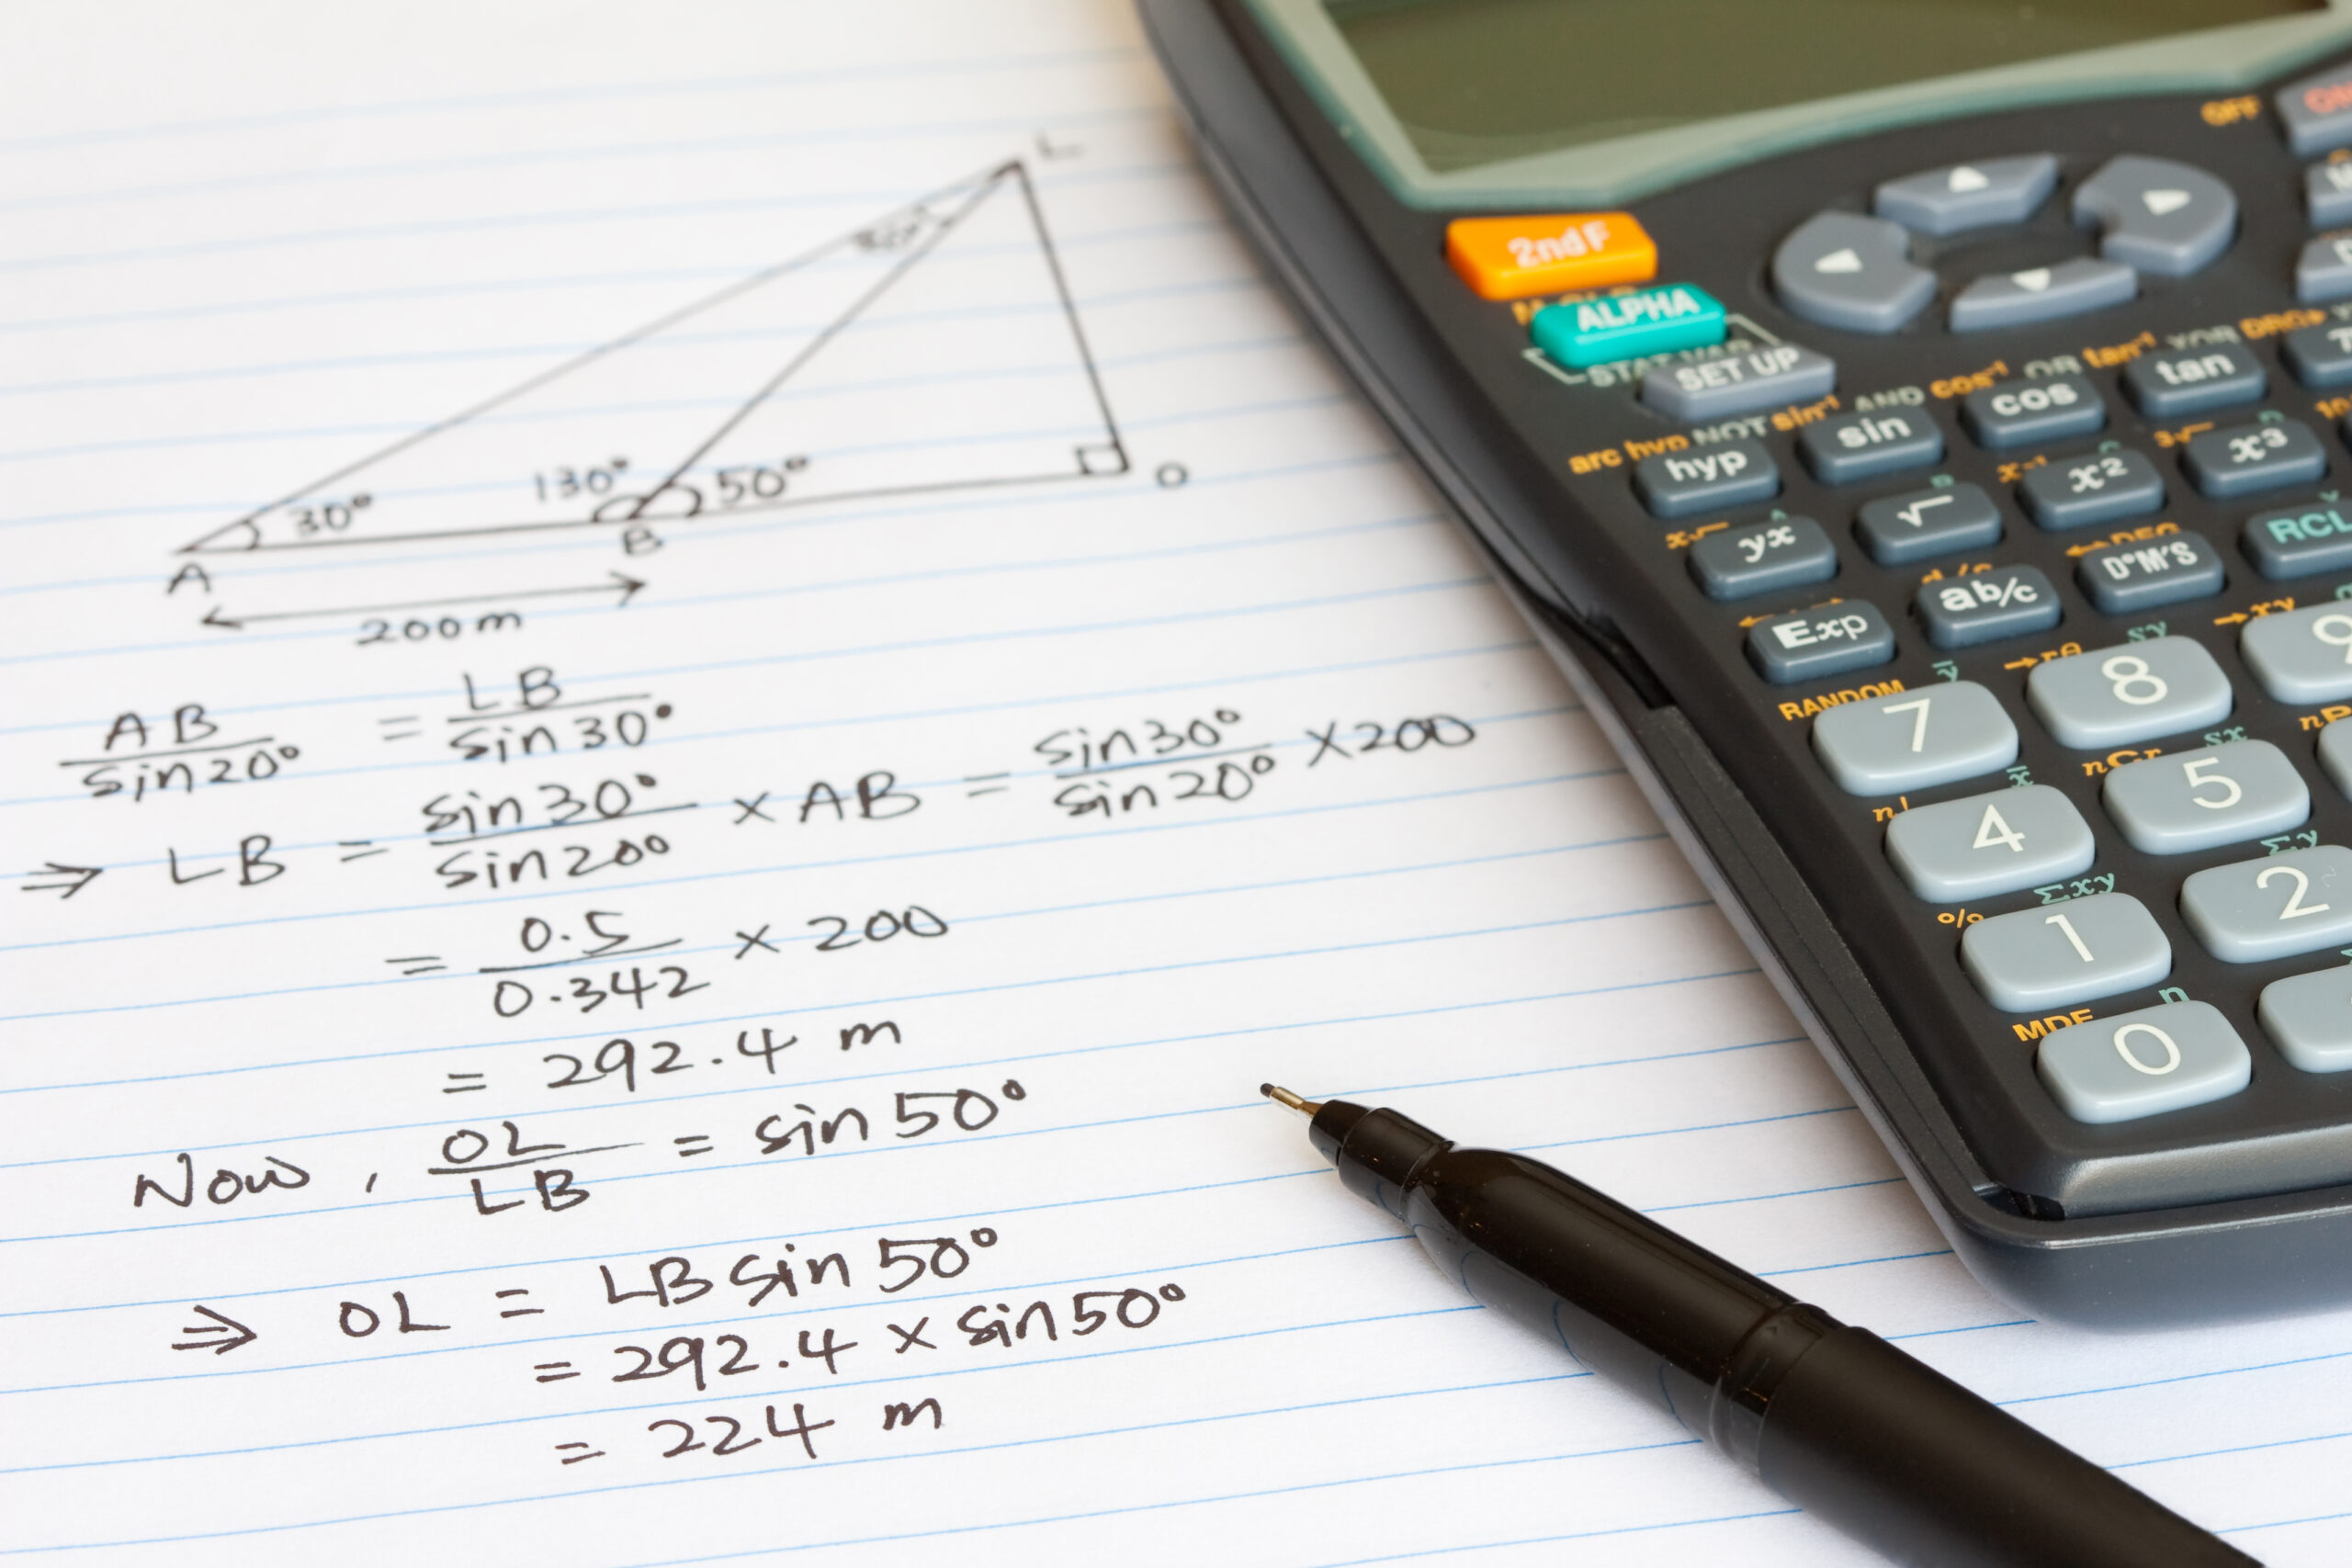 L
130° 50°
30° O
B
A
200m
AB/sin20° = LB/sin30°
⇒ LB = sin30°/sin20° × AB = sin30°/sin20° ×200
= 0.5/0.342 × 200
= 292.4 m
Now, OL/LB = sin50°
⇒ OL = LB sin50°
= 292.4 × sin50°
= 224 m
OFF
2ndF
ALPHA
STAT VAR
SET UP
arc hyp NOT sin⁻¹ AND cos⁻¹ OR tan⁻¹ XOR DRG▸
hyp sin cos tan
yx √ x² x³
↔DEG
Exp ab/c D°M'S RCL
RANDOM →rθ →xy
7 8 9
n! nCr
4 5
% Σxy Σy
1 2
MDF n
0